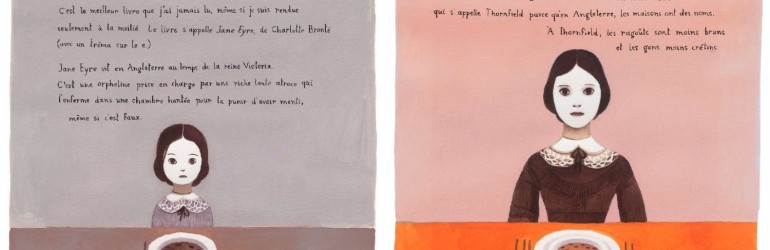 C'est le meilleur livre que j'ai jamais lu, même si je suis rendue
seulement à la moitié. Le livre s'appelle Jane Eyre, de Charlotte Brontë
(avec un tréma sur le e.)
Jane Eyre vit en Angleterre au temps de la reine Victoria.
C'est une orpheline prise en charge par une riche tante atroce qui
l'enferme dans une chambre hantée pour la punir d'avoir menti,
même si c'est faux.
qui s'appelle Thornfield parce qu'en Angleterre, les maisons ont des noms.
À Thornfield, les ragoûts sont moins bruns
et les gens moins crétins.